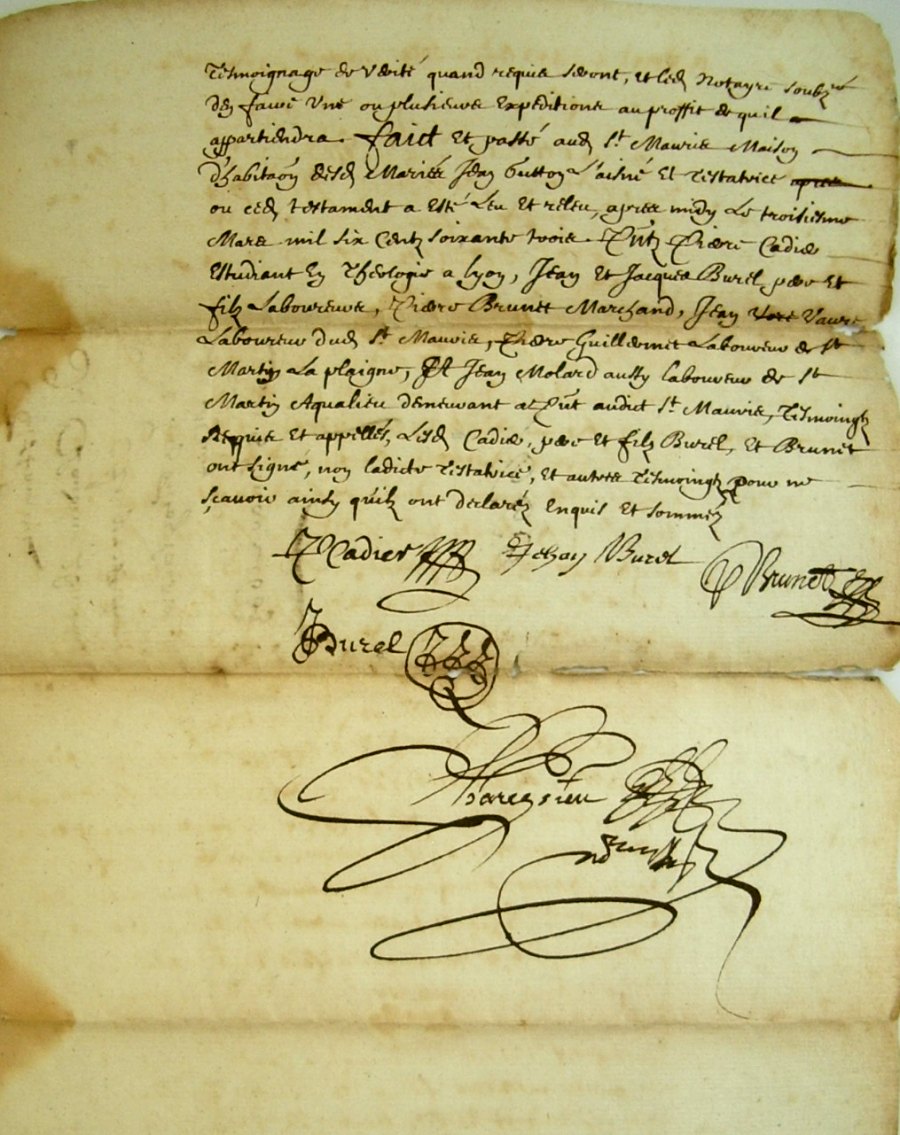 tesmoignage de verité quand requis seront, et led notayre soubz né
den faire une ou plusieurs expeditions au proffit de quil
appartiendra. faict et passé aud St Mauris Maison
d'habitaon desd Mariés Jean Gutton L'aisné et testatrice apres
ou ced testament a esté leu et releu, apres midy le troisiesme
Mars mil six centz soixante trois. Pntz Pierre Cadier
estudiant en Theologie a Lyon, Jean et Jacques Burel, pere et
filz Laboureurs, Pierre Brunet Marchand, Jean Vaure
Laboureur dud St Mauris, Pierre Guillermet Laboureur de St
Martin La plaigne, Et Jean Molard aussy laboureur de St
Martin Aqualieu demeurant a pnt audict St Mauris, Tesmoingtz
Requis et appellés, Lesd Cadier, pere et filz Burel, et Brunet
ont signé, non ladicte testatrice, et autres tesmoingtz pour ne
sçavoir ainsy qu'ilz ont declaréz enquis et sommez
P Cadier Jehan Burel P Brunet
J Burel